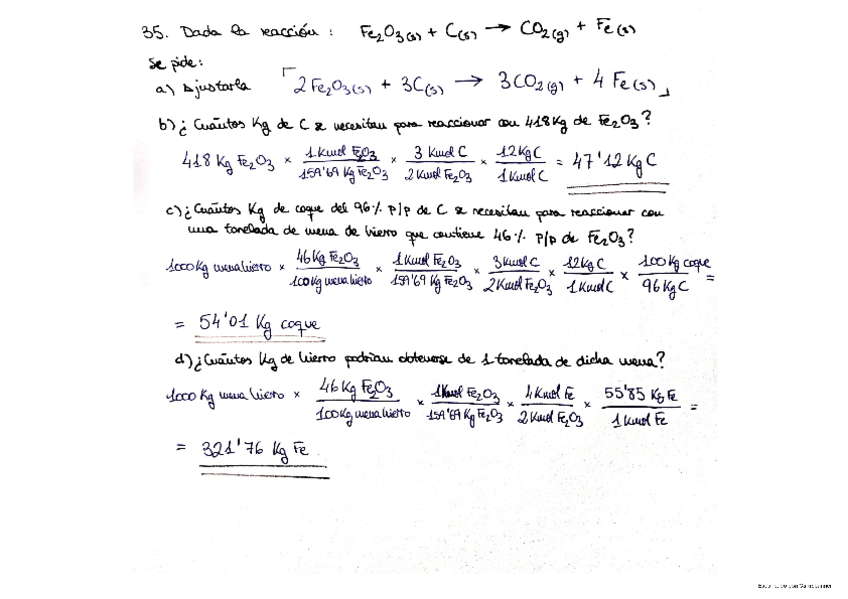 35. Dada la reacción : Fe₂O₃(s) + C(s) → CO₂(g) + Fe(s)
Se pide:
a) Ajustarla 2 Fe₂O₃(s) + 3C(s) → 3CO₂(g) + 4 Fe(s)
b) ¿Cuántos Kg de C se necesitan para reaccionar con 418 Kg de Fe₂O₃?
418 Kg Fe₂O₃ × 1 Kmol Fe₂O₃ / 159'69 Kg Fe₂O₃ × 3 Kmol C / 2 Kmol Fe₂O₃ × 12 Kg C / 1 Kmol C = 47'12 Kg C
c) ¿Cuántos Kg de coque del 96% p/p de C se necesitan para reaccionar con
una tonelada de mena de hierro que contiene 46% p/p de Fe₂O₃?
1000 Kg mena hierro × 46 Kg Fe₂O₃ / 100 Kg mena hierro × 1 Kmol Fe₂O₃ / 159'69 Kg Fe₂O₃ × 3 Kmol C / 2 Kmol Fe₂O₃ × 12 Kg C / 1 Kmol C × 100 Kg coque / 96 Kg C =
= 54'01 Kg coque
d) ¿Cuántos Kg de hierro podrían obtenerse de 1 tonelada de dicha mena?
1000 Kg mena hierro × 46 Kg Fe₂O₃ / 100 Kg mena hierro × 1 Kmol Fe₂O₃ / 159'69 Kg Fe₂O₃ × 4 Kmol Fe / 2 Kmol Fe₂O₃ × 55'85 Kg Fe / 1 Kmol Fe =
= 321'76 Kg Fe